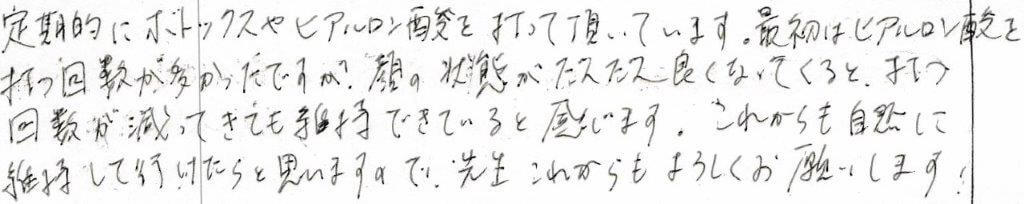 定期的にボトックスやヒアルロン酸を打って頂いています。最初はヒアルロン酸を
打つ回数が多かったですが、顔の状態がだんだん良くなってくると、打つ
回数が減ってきても維持できていると感じます。これからも自然に
維持して行けたらと思いますので、先生これからもよろしくお願いします!